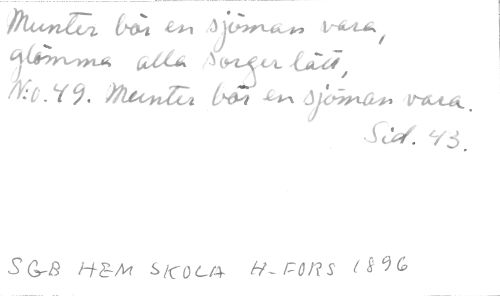 Munter bör en sjöman vara,
glömma alla sorger lätt,
N:o. 49. Munter bör en sjöman vara.
Sid. 43.
SGB HEM SKOLA H-FORS 1896